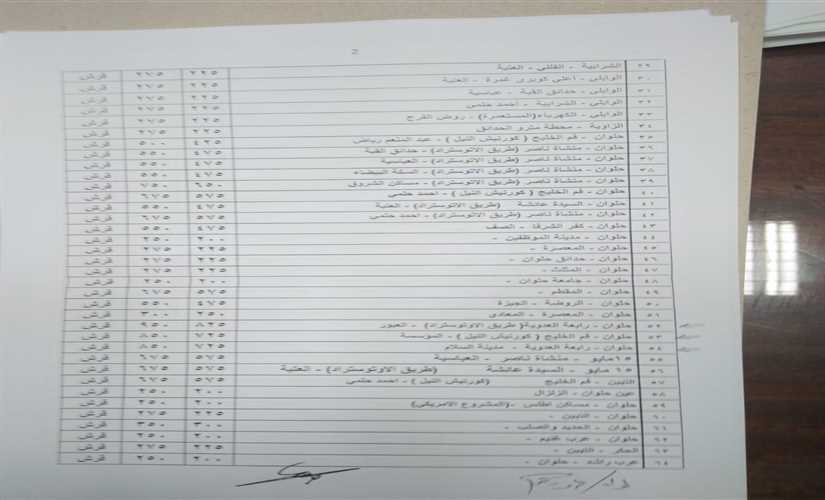 2
٢٩ الشرابية - القللى - العتبة ٢٢٥ ٢٧٥ قرش
٣٠ الوايلى - اعلى كوبرى غمرة - العتبة ٢٢٥ ٢٧٥ قرش
٣١ الوايلى - حدائق القبة - عباسية ٢٢٥ ٢٧٥ قرش
٣٢ الوايلى - الشرابية - احمد حلمى ٢٢٥ ٢٧٥ قرش
٣٣ الوايلى - الكهرباء(المستعمرة) - روض الفرج ٢٢٥ ٢٧٥ قرش
٣٤ الزاوية - محطة مترو الحدائق ٢٢٥ ٢٧٥ قرش
٣٥ حلوان - فم الخليج ( كورنيش النيل ) - عبد المنعم رياض ٤٢٥ ٥٠٠ قرش
٣٦ حلوان - منشاة ناصر (طريق الاتوستراد) - حدائق القبة ٤٧٥ ٥٥٠ قرش
٣٧ حلوان - منشاة ناصر (طريق الاتوستراد) - العباسية ٤٧٥ ٥٥٠ قرش
٣٨ حلوان - منشاة ناصر (طريق الاتوستراد) - السكة البيضاء ٤٧٥ ٥٥٠ قرش
٣٩ حلوان - منشاة ناصر (طريق الاتوستراد) - مساكن الشروق ٦٥٠ ٧٥٠ قرش
٤٠ حلوان - فم الخليج ( كورنيش النيل ) - احمد حلمى ٥٧٥ ٦٧٥ قرش
٤١ حلوان - السيدة عائشة (طريق الاتوستراد) - العتبة ٤٧٥ ٥٥٠ قرش
٤٢ حلوان - منشاة ناصر (طريق الاتوستراد) - احمد حلمى ٥٧٥ ٦٧٥ قرش
٤٣ حلوان - كفر الشرفا - الصف ٤٧٥ ٥٥٠ قرش
٤٤ حلوان - مدينة الموظفين - ٢٠٠ ٢٥٠ قرش
٤٥ حلوان - المعصرة - ٢٢٥ ٢٧٥ قرش
٤٦ حلوان - حدائق حلوان - ٢٢٥ ٢٧٥ قرش
٤٧ حلوان - المثلث - ٢٢٥ ٢٧٥ قرش
٤٨ حلوان - جامعة حلوان - ٢٠٠ ٢٥٠ قرش
٤٩ حلوان - المقطم - ٥٧٥ ٦٧٥ قرش
٥٠ حلوان - الروضة - الجيزة ٤٧٥ ٥٥٠ قرش
٥١ حلوان - المعصرة - المعادى ٢٥٠ ٣٠٠ قرش
٥٢ حلوان - رابعة العدوية( طريق الاوتوستراد) - العبور ٨٢٥ ٩٥٠ قرش
٥٣ حلوان - فم الخليج ( كورنيش النيل ) - المؤسسة ٧٢٥ ٨٥٠ قرش
٥٤ حلوان - رابعة العدوية - مدينة السلام ٧٢٥ ٨٥٠ قرش
٥٥ ١٥مايو - منشاة ناصر - العباسية ٥٧٥ ٦٧٥ قرش
٥٦ ١٥ مايو - السيدة عائشة (طريق الاوتوستراد) - العتبة ٥٧٥ ٦٧٥ قرش
٥٧ التبين - فم الخليج (كورنيش النيل ) - احمد حلمى ٥٧٥ ٦٧٥ قرش
٥٨ عين حلوان - الزلزال ٢٠٠ ٢٥٠ قرش
٥٩ حلوان - مساكن اطلس -(المشروع الامريكى) ٢٠٠ ٢٥٠ قرش
٦٠ حلوان - التبين - ٢٢٥ ٢٧٥ قرش
٦١ حلوان - الحديد والصلب - ٣٠٠ ٣٥٠ قرش
٦٢ حلوان - عرب غنيم - ٢٠٠ ٢٥٠ قرش
٦٣ الحكر - التبين - ٢٢٥ ٢٧٥ قرش
٦٤ عرب راشد - حلوان - ٢٠٠ ٢٥٠ قرش